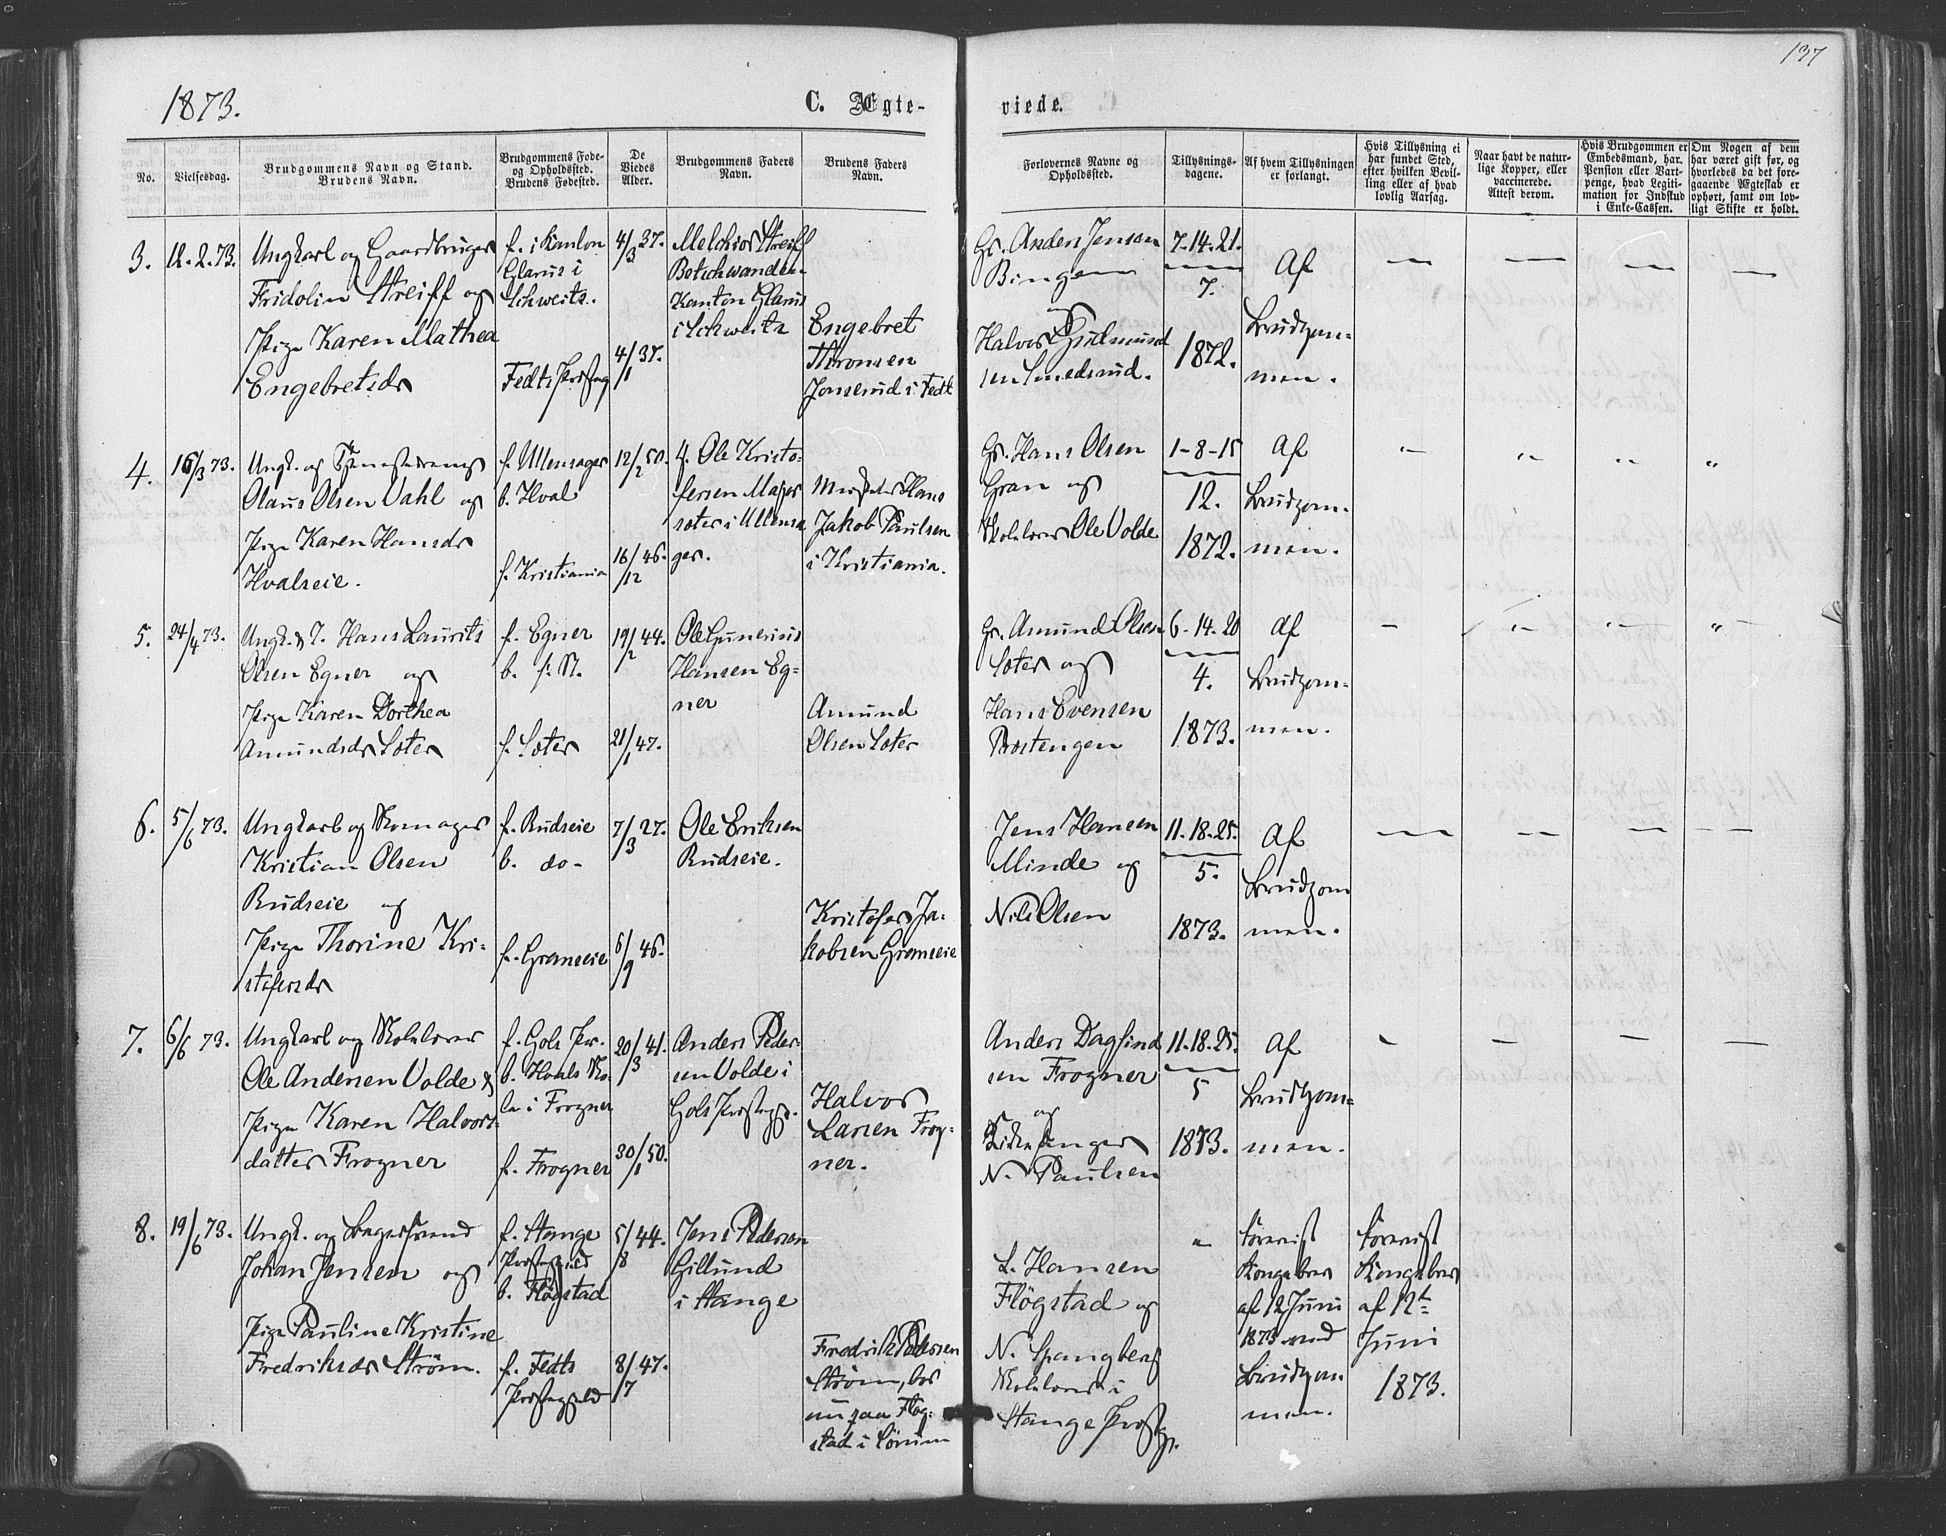 137
1873.
C. Ægte-
viede.
No.
Vielsesdag.
Brudgommens Navn og Stand.
Brudens Navn.
Brudgommens Føde-
og Opholdssted.
Brudens Fødested.
De
Viedes
Alder.
Brudgommens Faders
Navn.
Brudens Faders
Navn.
Forlovernes Navne og
Opholdssted.
Tillysnings-
dagene.
Af hvem Tillysningen
er forlangt.
Hvis Tillysning ei
har fundet Sted,
efter hvilken Bevil-
ling eller af hvad
lovlig Aarsag.
Naar havt de natur-
lige Kopper, eller
vaccinerede.
Attest derom.
Hvis Brudgommen er
Embedsmand, har
Pension eller Vart-
penge, hvad Legiti-
mation for Indskud
i Enke-Cassen.
Om Nogen af dem
har været gift før, og
hvorledes da det fore-
gaaende Ægteskab er
ophørt, samt om lov-
ligt Skifte er holdt.
3.
12.2.73.
Ungkarl og Gaardbruger
Fridolin Streiff og
Pige Karen Mathea
Engebretsdr
f. i Kanton
Glarus i
Schweits.
Fedts Prstg
4/3 37.
4/1 37.
Melchior Streiff
Betschwanden
Kanton Glarus
i Schweits
Engebret
Thronsen
Jonserud i Fedt
Gr. Anders Jensen
Bingen
og
Halvor Gudmund
sen Smedsrud.
7-14-21.
7.
1872.
Af
Brudgom-
men.
4.
16/3 73.
Ungk. og Tjenestedreng
Olaus Olsen Vahl og
Pige Karen Hansdr
Hvalseie.
f. Ullensager
b. Hval
f. Kristiania
12/2 50.
16/12 46.
f. Ole Kristo-
fersen Mager
soter i Ullensa
ger.
Hans
Jakob Paulsen
i Kristiania.
Gr. Hans Olsen
Gran og
Skolelærer Ole Volde
1-8-15
12.
1872.
Af
Brudgom-
men.
5.
24/4 73.
Ungk. & I. Hans Laurits
Olsen Egner og
Pige Karen Dorthea
Amundsdr Soter
f. Egner
b. f. St.
f. Soter
19/2 44.
21/1 47.
Ole Gunerius
Hansen Eg-
ner
Amund
Olsen Soter
Gr. Amund Olsen
Soter og
Hans Evensen
Prestengen
6-14-20
4.
1873.
Af
Brudgom-
men.
6.
5/6 73.
Ungkarl og Skomager
Kristian Olsen
Rudseie og
Pige Thorine Kri-
stofersdr
f. Rudseie
b. do-
f. Granseie
7/3 27.
6/9 46.
Ole Eriksen
Rudseie.
Kristofer Ja-
kobsen Granseie
Jens Hansen
Minde og
Nils Olsen
11-18-25.
5.
1873.
Af
Brudgom
men.
7.
6/6 73.
Ungkarl og Skolelærer
Ole Andersen Volde &
Pige Karen Halvors-
datter Frogner
f. Gols Pr.
b. Hvals Sko-
le i Frogner
f. Frogner
20/3 41.
30/1 50.
Anders Peder-
sen Volde i
Gols Prstgj.
Halvor
Larsen Frog-
ner.
Anders Dagfind
sen Frogner
og
Kirkesanger
N. Paulsen
11-18-25.
5
1873.
Af
Brudgom-
men.
8.
19/6 73.
Ungk. og
Johan Jensen og
Pige Pauline Kristine
Fredriksdr Strøm.
f. Stange
Prstgjeld
b. Fløgstad
f. Fedts
Prstegjeld
5/8 44.
8/7 47.
Jens Pedersen
Gillund
i Stange
Fredrik Pedersen
Strøm, bor
nu paa Fløg-
stad i Sørum
L. Hansen
Fløgstad og
N. Spangberg
Skolelærer i
Stange Prstgj.
foreviist
Kongebrev
af 12 Juni
1873 ved
Brudgom
men.
foreviist
Kongebrev
af 12te
Juni
1873.